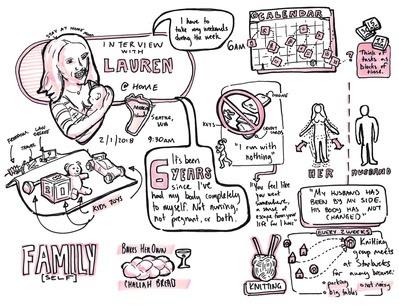 STAY AT HOME MOM
INTERVIEW
WITH
LAUREN
@ HOME
SEATTLE,
WA
2/1/2018 9:30AM
I have to
take my weekends
during the week.
CALENDAR
6AM
Think of
tasks as
blocks of
time.
PHONE
KEYS
CREDIT
CARDS
"I run with
nothing"
"You feel like
you went
somewhere,
a sense of
escape from your
life for 1 hour"
HER
HUSBAND
"MY HUSBAND HAS
BEEN BY MY SIDE.
HIS BODY HAS NOT
CHANGED"
TRAVEL
KIDS TOYS
It's been
6 YEARS
since I've
had my body completely
to myself. Not nursing,
not pregnant, or both.
FAMILY
[SELF]
BAKES HER OWN
CHALLAH BREAD
KNITTING
EVERY 2 WEEKS
Knitting
group meets
@ Starbucks
for many because:
• parking
• big tables
• not noisy